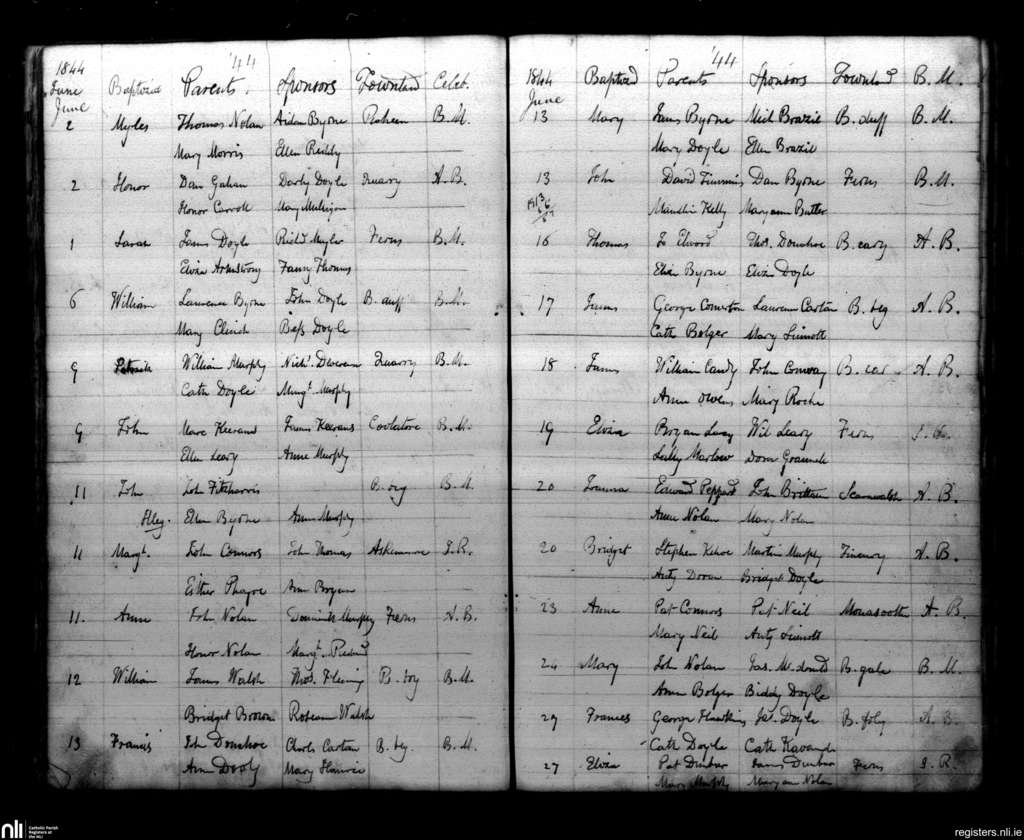 1844 '44
June Baptized Parents. Sponsors Townland Celeb.
June
2 Myles Thomas Nolan Aidan Byrne Raheen B. M.
Mary Morris Ellen Reddy
2 Honor Dan Gahan Darby Doyle Quarry A. B.
Honor Carroll Mary Mulligan
1 Sarah James Doyle Richd Myler Ferns B. M.
Eliza Armstrong Fanny Thomas
6 William Laurence Byrne John Doyle B. duff B. M.
Mary Bess Doyle
9 Patrick William Murphy Nichs. Devereux Quarry B. M.
Cath Doyle Margt. Murphy
9 John James Keerans Coolatore B. M.
Ellen Leary Anne Murphy
11 John John Fitzharris B. M.
Illeg. Ellen Byrne Ann Murphy
11 Margt. John Connors John Thomas J. R.
Esther Ann Bryan
11. Anne John Nolan Dominick Murphy Ferns A. B.
Honor Nolan Margt.
12 William James Walsh Thos. Fleming B. M.
Bridget Brown Walsh
13 Francis John Donohoe Charls Carton B. beg. B. M.
Ann Mary
'44
1844 Baptized Parents Sponsors Townld B. M.
June
13 Mary James Byrne Mich Brazil B. duff B. M.
Mary Doyle Ellen Brazil
13 John David Timmins Dan Byrne Ferns B. M.
Kelly Maryann Butler
16 Thomas Thos. Donohoe B. cary A. B.
Eliza Byrne Eliza Doyle
17 James George Laurence Carton B. beg A. B.
Cath Bolger Mary Sinnott
18 James William John Conway B. car A. B.
Anne Owens Mary Roche
19 Eliza Bryan Wil Leary Ferns
Marlow
20 Joanna Edward Peppard John Brittan Scarawalsh A. B.
Anne Nolan Mary Nolan
20 Bridget Stephen Kehoe Martin Murphy A. B.
Anty Doran Bridget Doyle
23 Anne Pat Connors Pat Neil Monasooth A. B.
Mary Neil Anty Sinnott
24 Mary John Nolan B. gale B. M.
Ann Bolger Biddy Doyle
29 Frances George Hawkins Doyle B. foly A. B.
Cath Doyle Cath
27 Eliza Pat Dunbar James Dunbar Ferns J. R.
Mary Murphy Maryann Nolan
nli Catholic Parish
Registers at
the NLI
registers.nli.ie